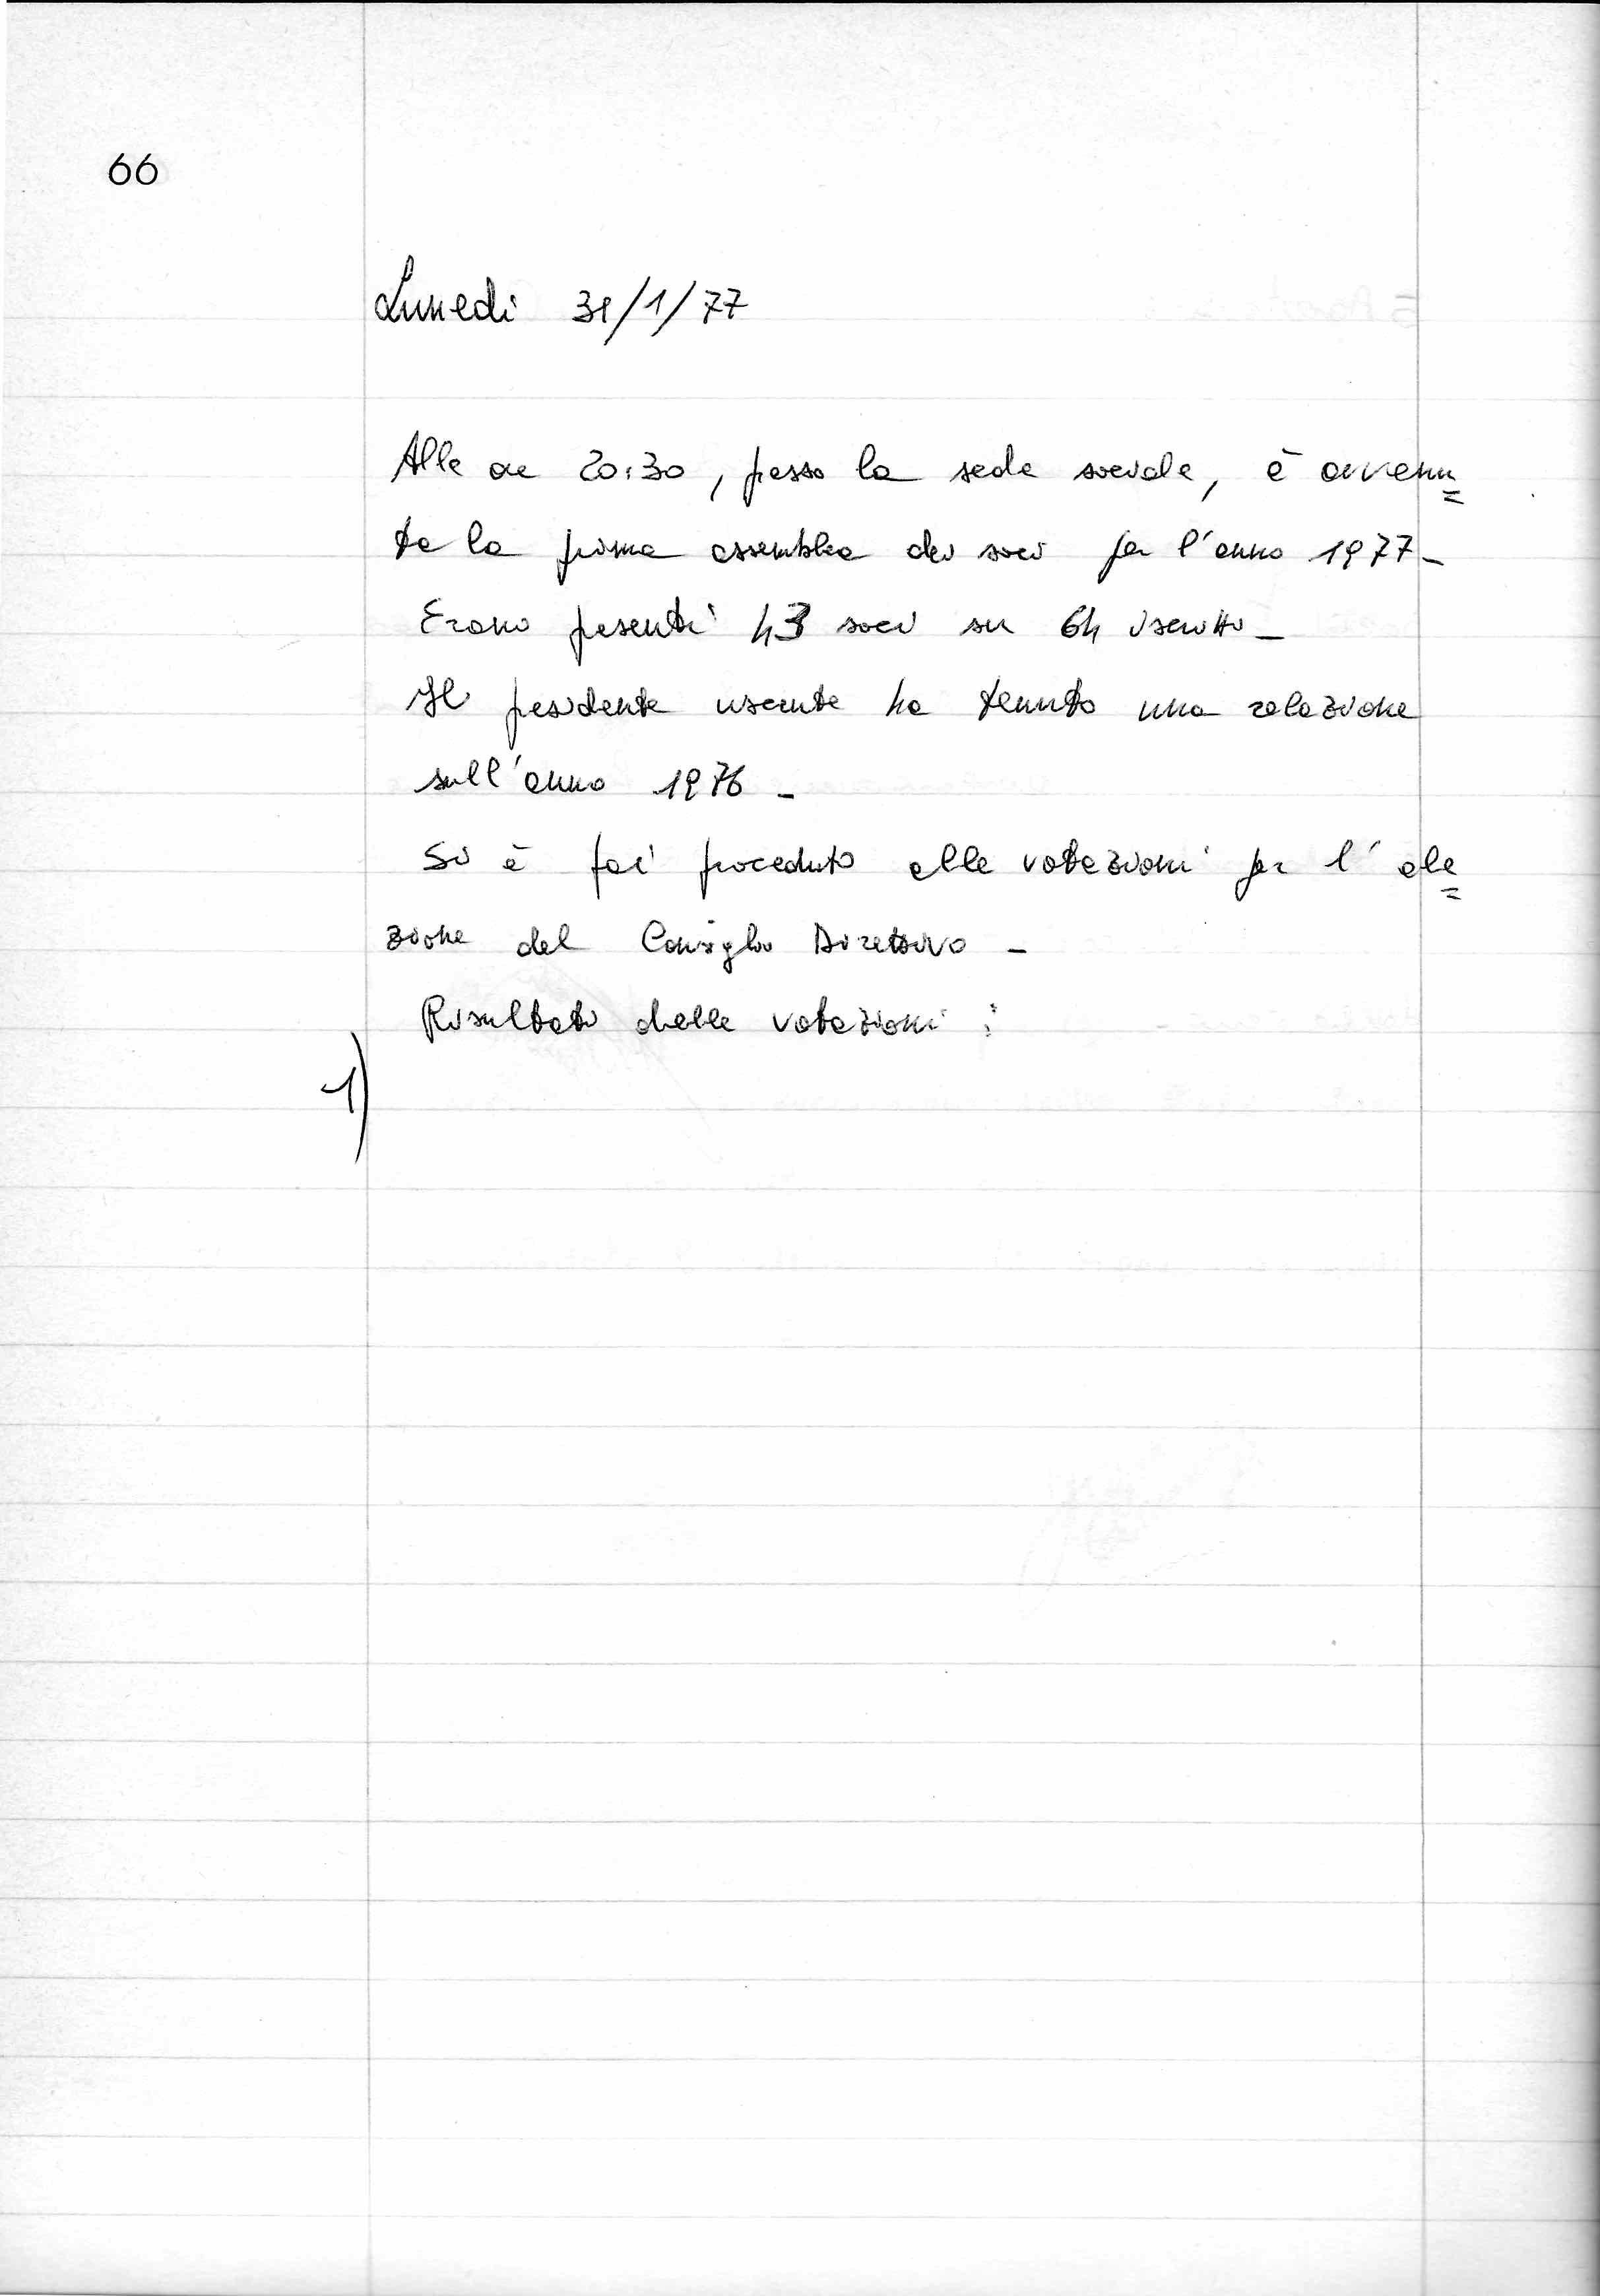 66
Lunedi 31/1/77
Alle ore 20:30, presso la sede sociale, è avvenu=
ta la prima assemblea dei soci per l'anno 1977-
Erano presenti 43 soci su 64 iscritti-
Il presidente uscente ha tenuto una relazione
sull'anno 1976-
Si è poi proceduto alle votazioni per l'ele=
zione del Consiglio Direttivo-
Risultati delle votazioni:
1)